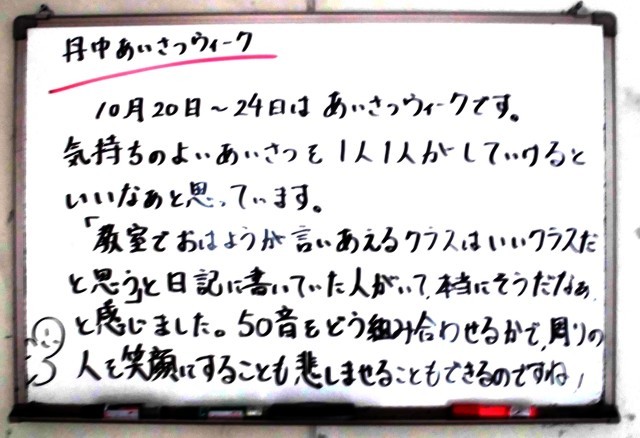 丹中あいさつウィーク
10月20日～24日は あいさつウィークです。
気持ちのよいあいさつを1人1人がしていけると
いいなぁと思っています。
「教室でおはようが言いあえるクラスはいいクラスだ
と思う」と日記に書いていた人がいて、本当にそうだなぁ
と感じました。50音をどう組み合わせるかで、周りの
人を笑顔にすることも悲しませることもできるのですね!